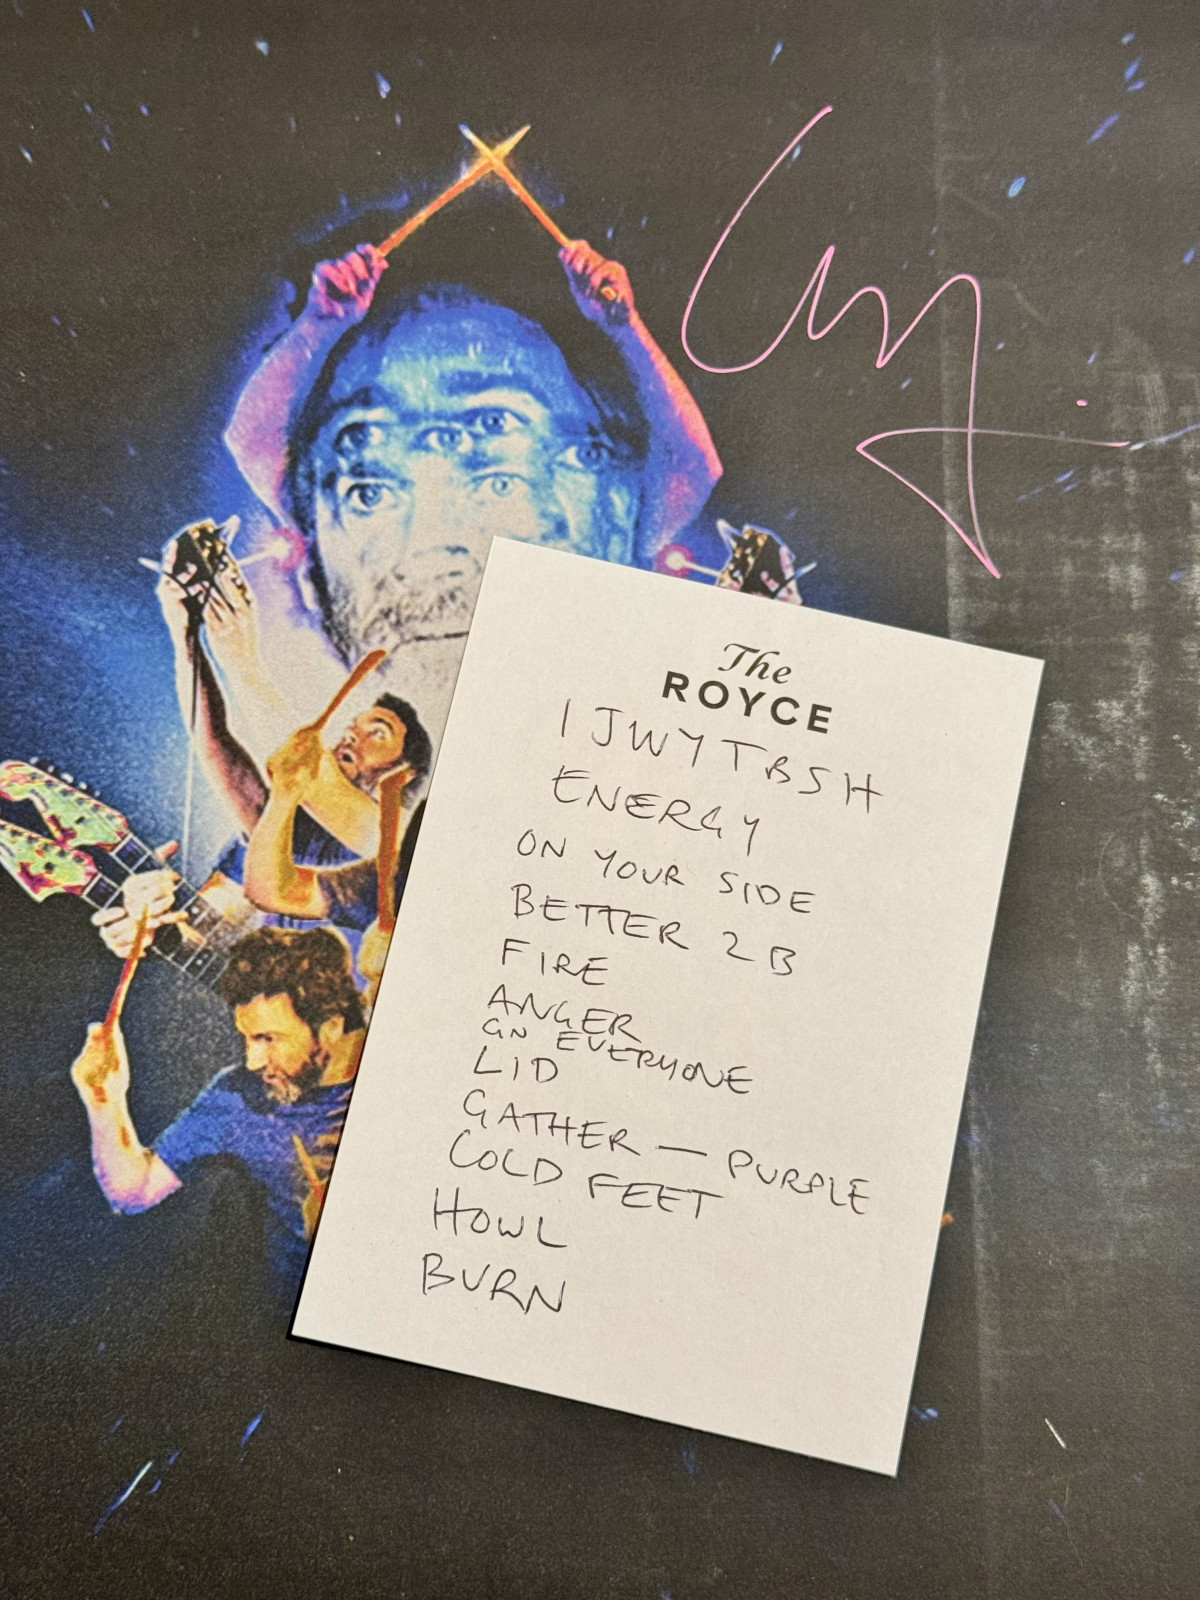 The
ROYCE
I JWYTBSH
ENERGY
ON YOUR SIDE
BETTER 2 B
FIRE
ANGER
ON EVERYONE
LID
GATHER — PURPLE
COLD FEET
HOWL
BURN